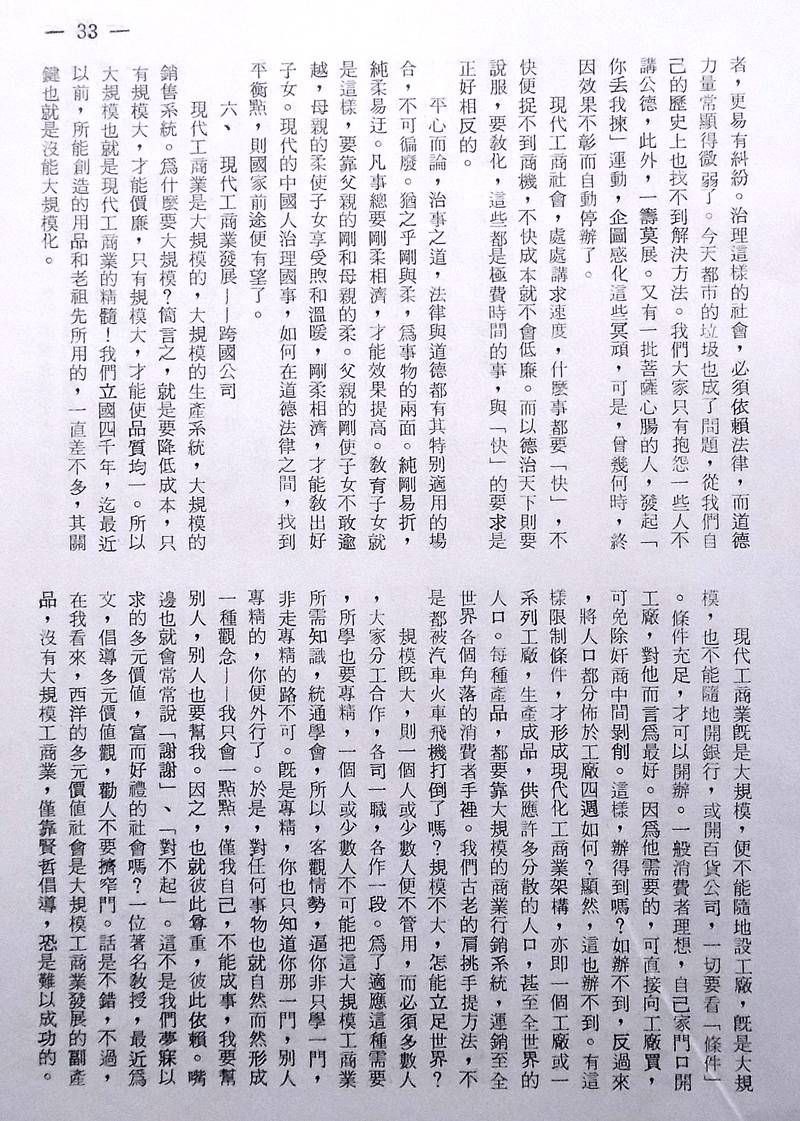 — 33 —
者,更易有糾紛。治理這樣的社會,必須依賴法律,而道德
力量常顯得微弱了。今天都市的垃圾也成了問題,從我們自
己的歷史上也找不到解決方法。我們大家只有抱怨一些人不
講公德,此外,一籌莫展。又有一批菩薩心腸的人,發起「
你丢我揀」運動,企圖感化這些冥頑,可是,曾幾何時,終
因效果不彰而自動停辦了。
現代工商社會,處處講求速度,什麼事都要「快」,不
快便捉不到商機,不快成本就不會低廉。而以德治天下則要
說服,要教化,這些都是極費時間的事,與「快」的要求是
正好相反的。
平心而論,治事之道,法律與道德都有其特別適用的場
合,不可徧廢。猶之乎剛與柔,爲事物的兩面。純剛易折,
純柔易迂。凡事總要剛柔相濟,才能效果提高。敎育子女就
是這樣,要靠父親的剛和母親的柔。父親的剛使子女不敢逾
越,母親的柔使子女享受煦和溫暖,剛柔相濟,才能敎出好
子女。現代的中國人治理國事,如何在道德法律之間,找到
平衡點,則國家前途便有望了。
六、 現代工商業發展——跨國公司
現代工商業是大規模的,大規模的生產系統,大規模的
銷售系統。爲什麼要大規模?簡言之,就是要降低成本,只
有規模大,才能價廉,只有規模大,才能使品質均一。所以
大規模也就是現代工商業的精髓!我們立國四千年,迄最近
以前,所能創造的用品和老祖先所用的,一直差不多,其關
鍵也就是沒能大規模化。
現代工商業旣是大規模,便不能隨地設工廠,旣是大規
模,也不能隨地開銀行,或開百貨公司,一切要看「條件」
。條件充足,才可以開辦。一般消費者理想,自己家門口開
工廠,對他而言爲最好。因爲他需要的,可直接向工廠買,
可免除奸商中間剝削。這樣,辦得到嗎?如辦不到,反過來
,將人口都分佈於工廠四週如何?顯然,這也辦不到。有這
樣限制條件,才形成現代化工商業架構,亦即一個工廠或一
系列工廠,生產成品,供應許多分散的人口,甚至全世界的
人口。每種產品,都要靠大規模的商業行銷系統,運銷至全
世界各個角落的消費者手裡。我們古老的肩挑手提方法,不
是都被汽車火車飛機打倒了嗎?規模不大,怎能立足世界?
規模旣大,則一個人或少數人便不管用,而必須多數人
,大家分工合作,各司一職,各作一段。爲了適應這種需要
,所學也要專精,一個人或少數人不可能把這大規模工商業
所需知識,統通學會,所以,客觀情勢,逼你非只學一門,
非走專精的路不可。旣是專精,你也只知道你那一門,別人
專精的,你便外行了。於是,對任何事物也就自然而然形成
一種觀念——我只會一點點,僅我自己,不能成事,我要幫
別人,別人也要幫我。因之,也就彼此尊重,彼此依賴。嘴
邊也就會常常說「謝謝」、「對不起」。這不是我們夢寐以
求的多元價值,富而好禮的社會嗎?一位著名敎授,最近爲
文,倡導多元價值觀,勸人不要擠窄門。話是不錯,不過,
在我看來,西洋的多元價值社會是大規模工商業發展的副產
品,沒有大規模工商業,僅靠賢哲倡導,恐是難以成功的。